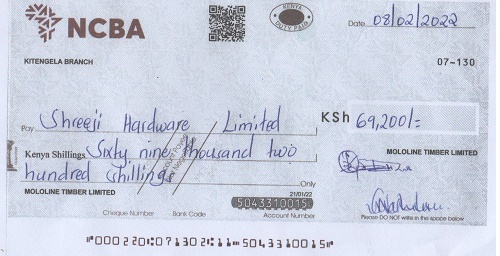 NCBA
KENYA
DUTY PAID
Date 08/02/2022
KITENGELA BRANCH
07-130
Pay Shreeji Hardware Limited
KSh 69,200/=
Kenya Shillings Sixty nine thousand two
hundred shillings Only
MOLOLINE TIMBER LIMITED
MOLOLINE TIMBER LIMITED
21/01/22
5043310015
Cheque Number Bank Code Account Number
Please DO NOT write in the space below
"000220"071302"11" 5043310015"